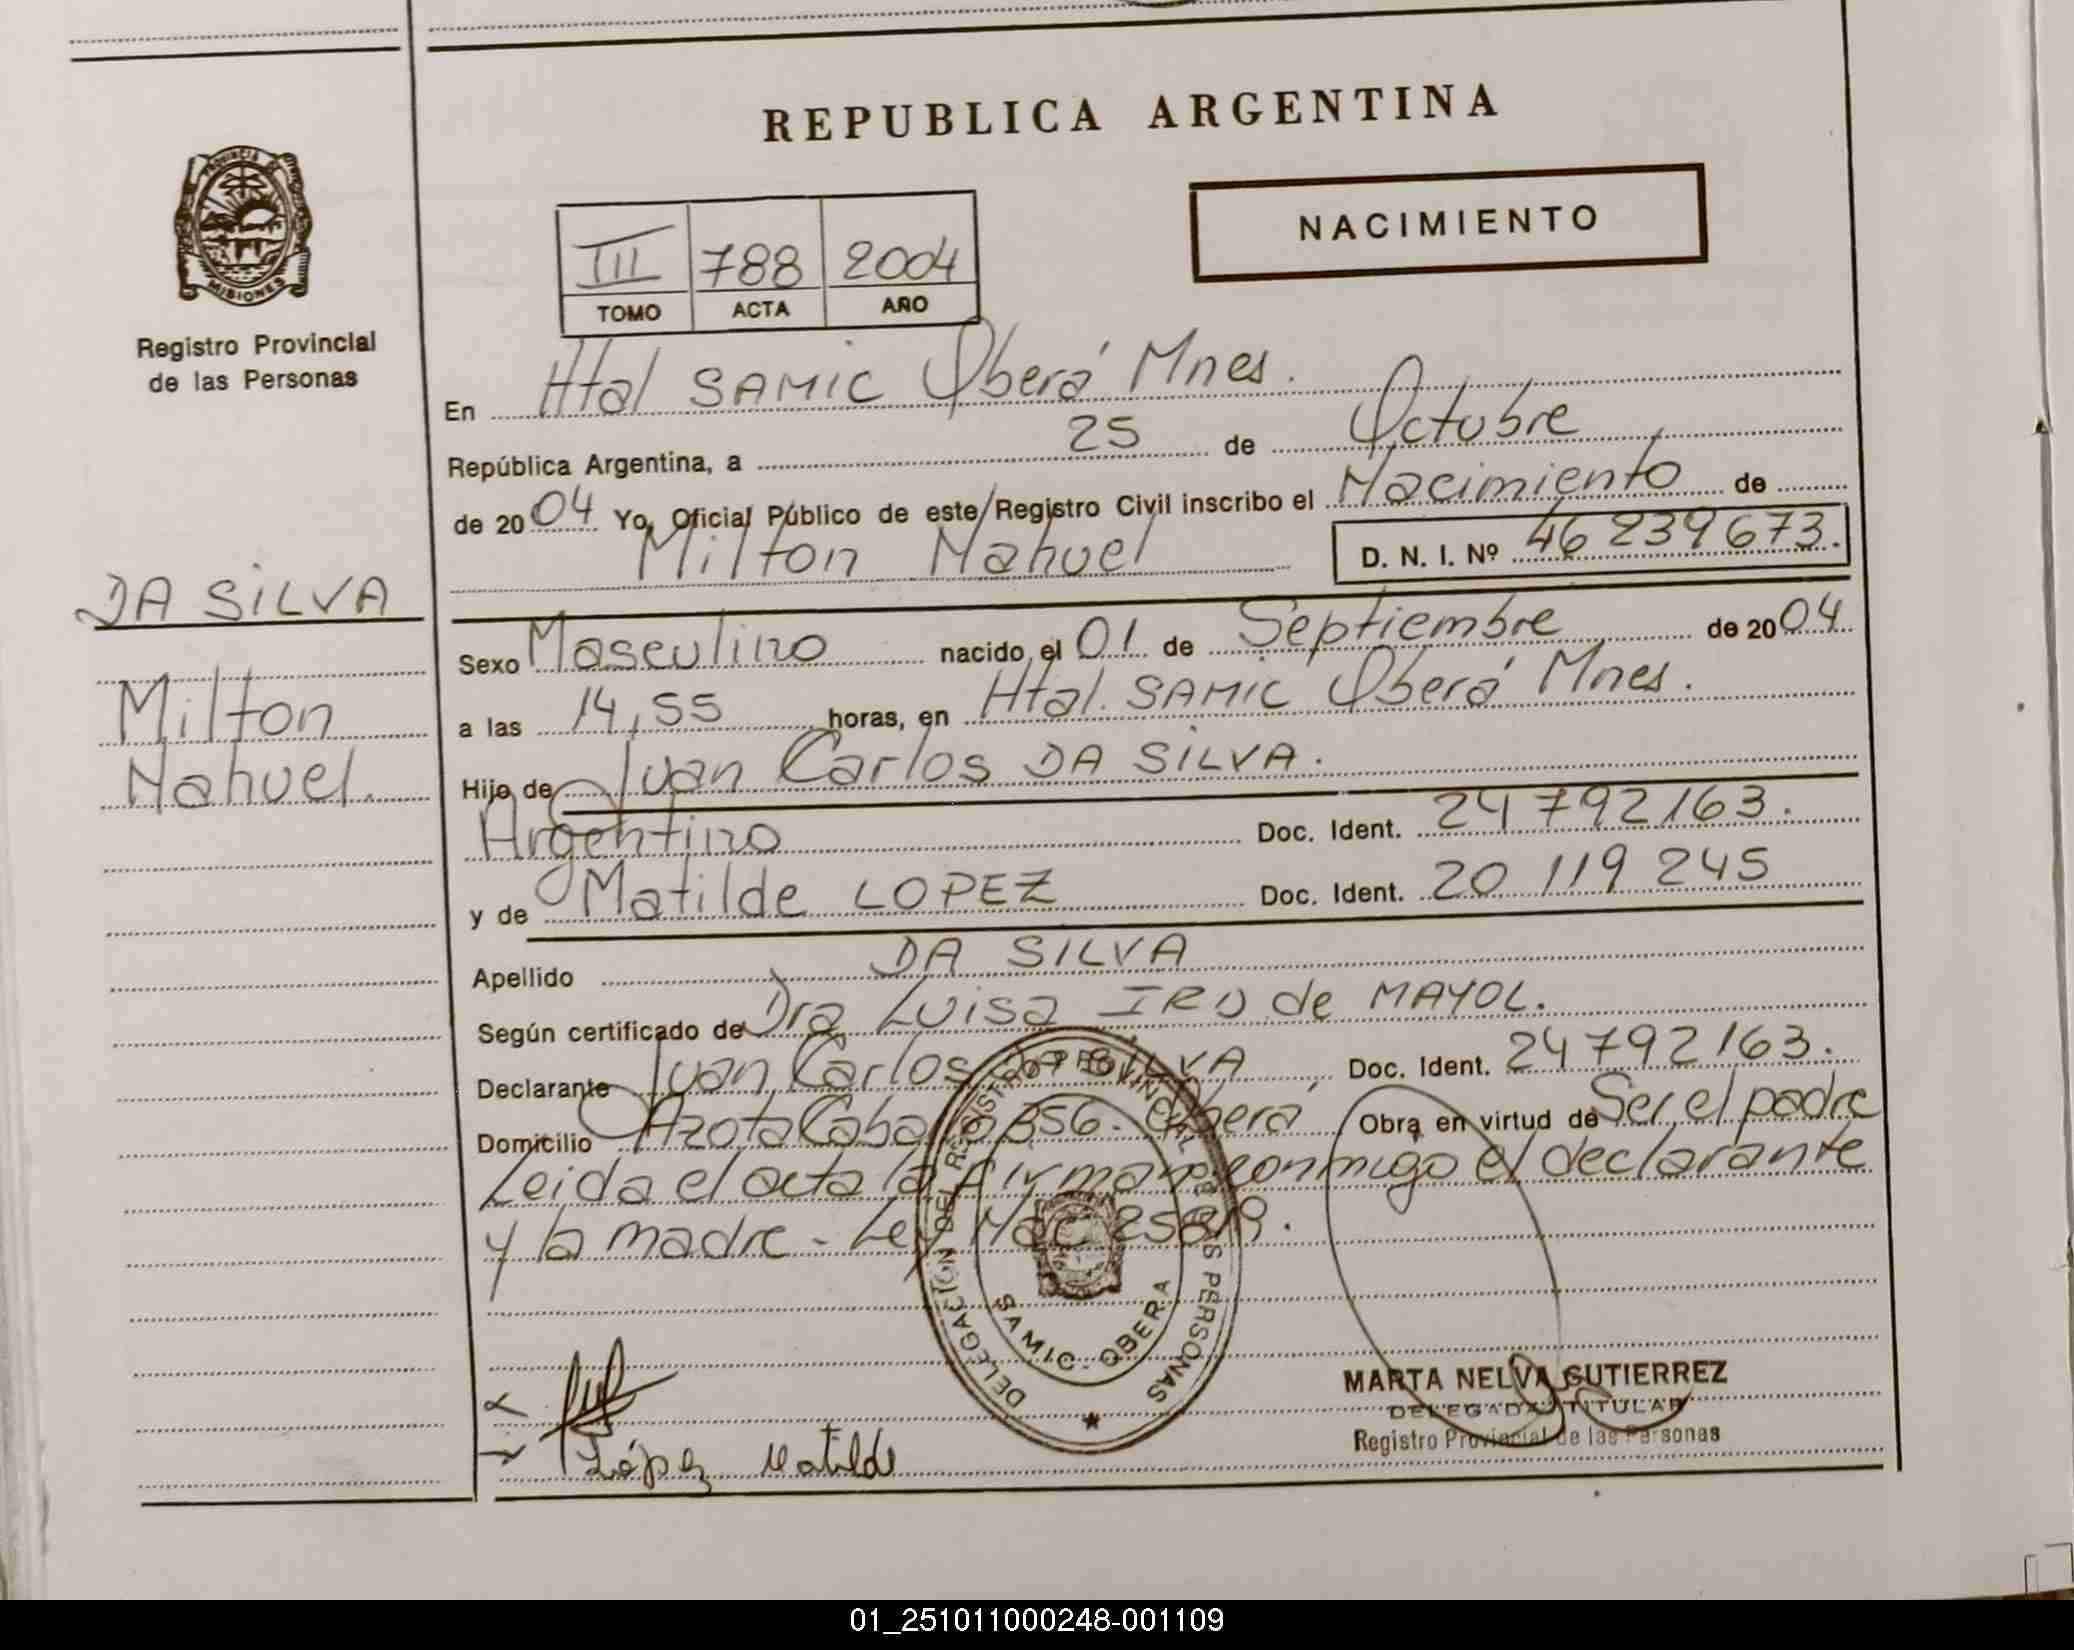 REPUBLICA ARGENTINA
NACIMIENTO
III 788 2004
TOMO ACTA AÑO
PROVINCIA DE MISIONES
Registro Provincial
de las Personas
DA SILVA
Milton
Nahuel.
En Htal SAMIC Oberá Mnes.
República Argentina, a 25 de Octubre
de 2004 Yo, Oficial Público de este Registro Civil inscribo el Nacimiento de
Milton Nahuel D. N. I. Nº 46 239 673.
Sexo Masculino nacido el 01 de Septiembre de 2004
a las 14,55 horas, en Htal. SAMIC Oberá Mnes.
Hijo de Juan Carlos DA SILVA.
Argentino Doc. Ident. 24 792 163.
y de Matilde LOPEZ Doc. Ident. 20 119 245
Apellido DA SILVA
Según certificado de Dra Luisa de MAYOL.
Declarante Juan Carlos DA SILVA Doc. Ident. 24 792 163.
Domicilio 356. Oberá Obra en virtud de Ser el padre
Leida el acta la firman conmigo el declarante
y la madre - Ley Nac 25819.
DELEGACION DEL REGISTRO PROVINCIAL DE LAS PERSONAS
SAMIC - OBERA
MARTA NELVA GUTIERREZ
DELEGADA TITULAR
Registro Provincial de las Personas
López Matilde
01_251011000248-001109